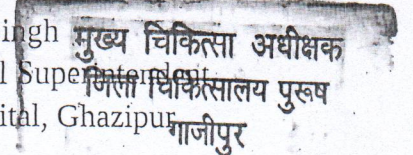 ingh मुख्य चिकित्सा अधीक्षक
l Superintendent जिला चिकित्सालय पुरूष
ital, Ghazipur गाजीपुर